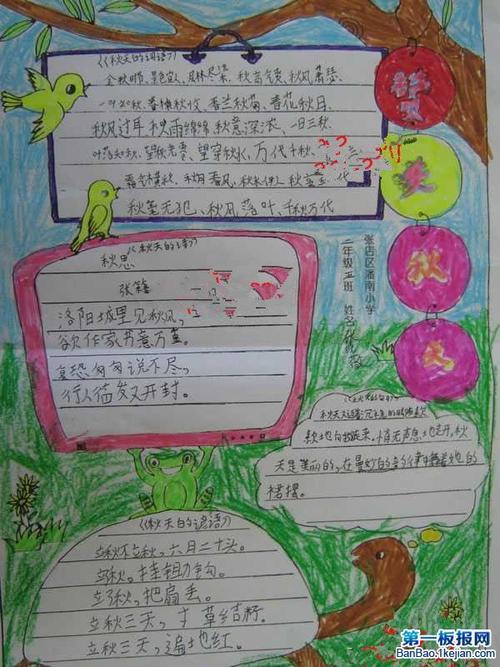 《秋天的词语》
金秋时节、景色宜人、层林尽染、秋高气爽、秋风萧瑟、
一叶知秋、春种秋收、春兰秋菊、春花秋月、
秋风过耳、秋雨绵绵、秋意深浓、一日三秋
叶落知秋、望秋先零、望穿秋水、万代千秋、
秋毫无犯、秋风落叶、千秋万代
美
秋
天
张店区潘南小学
二年级五班 姓名
《秋天的诗》
秋思
张籍
洛阳城里见秋风,
欲作家书意万重。
复恐匆匆说不尽,
行人临发又开封。
款地向我走来,悄无声息地走开,秋
天是美丽的,在曼妙的音律中舞着她的
裙摆。
《秋天的谚语》
立秋不立秋,六月二十头。
立秋,挂锄钩。
立了秋,把扇丢。
立秋三天,寸草结籽。
立秋三天,遍地红。
第一板报网
BanBao.1kejian.com